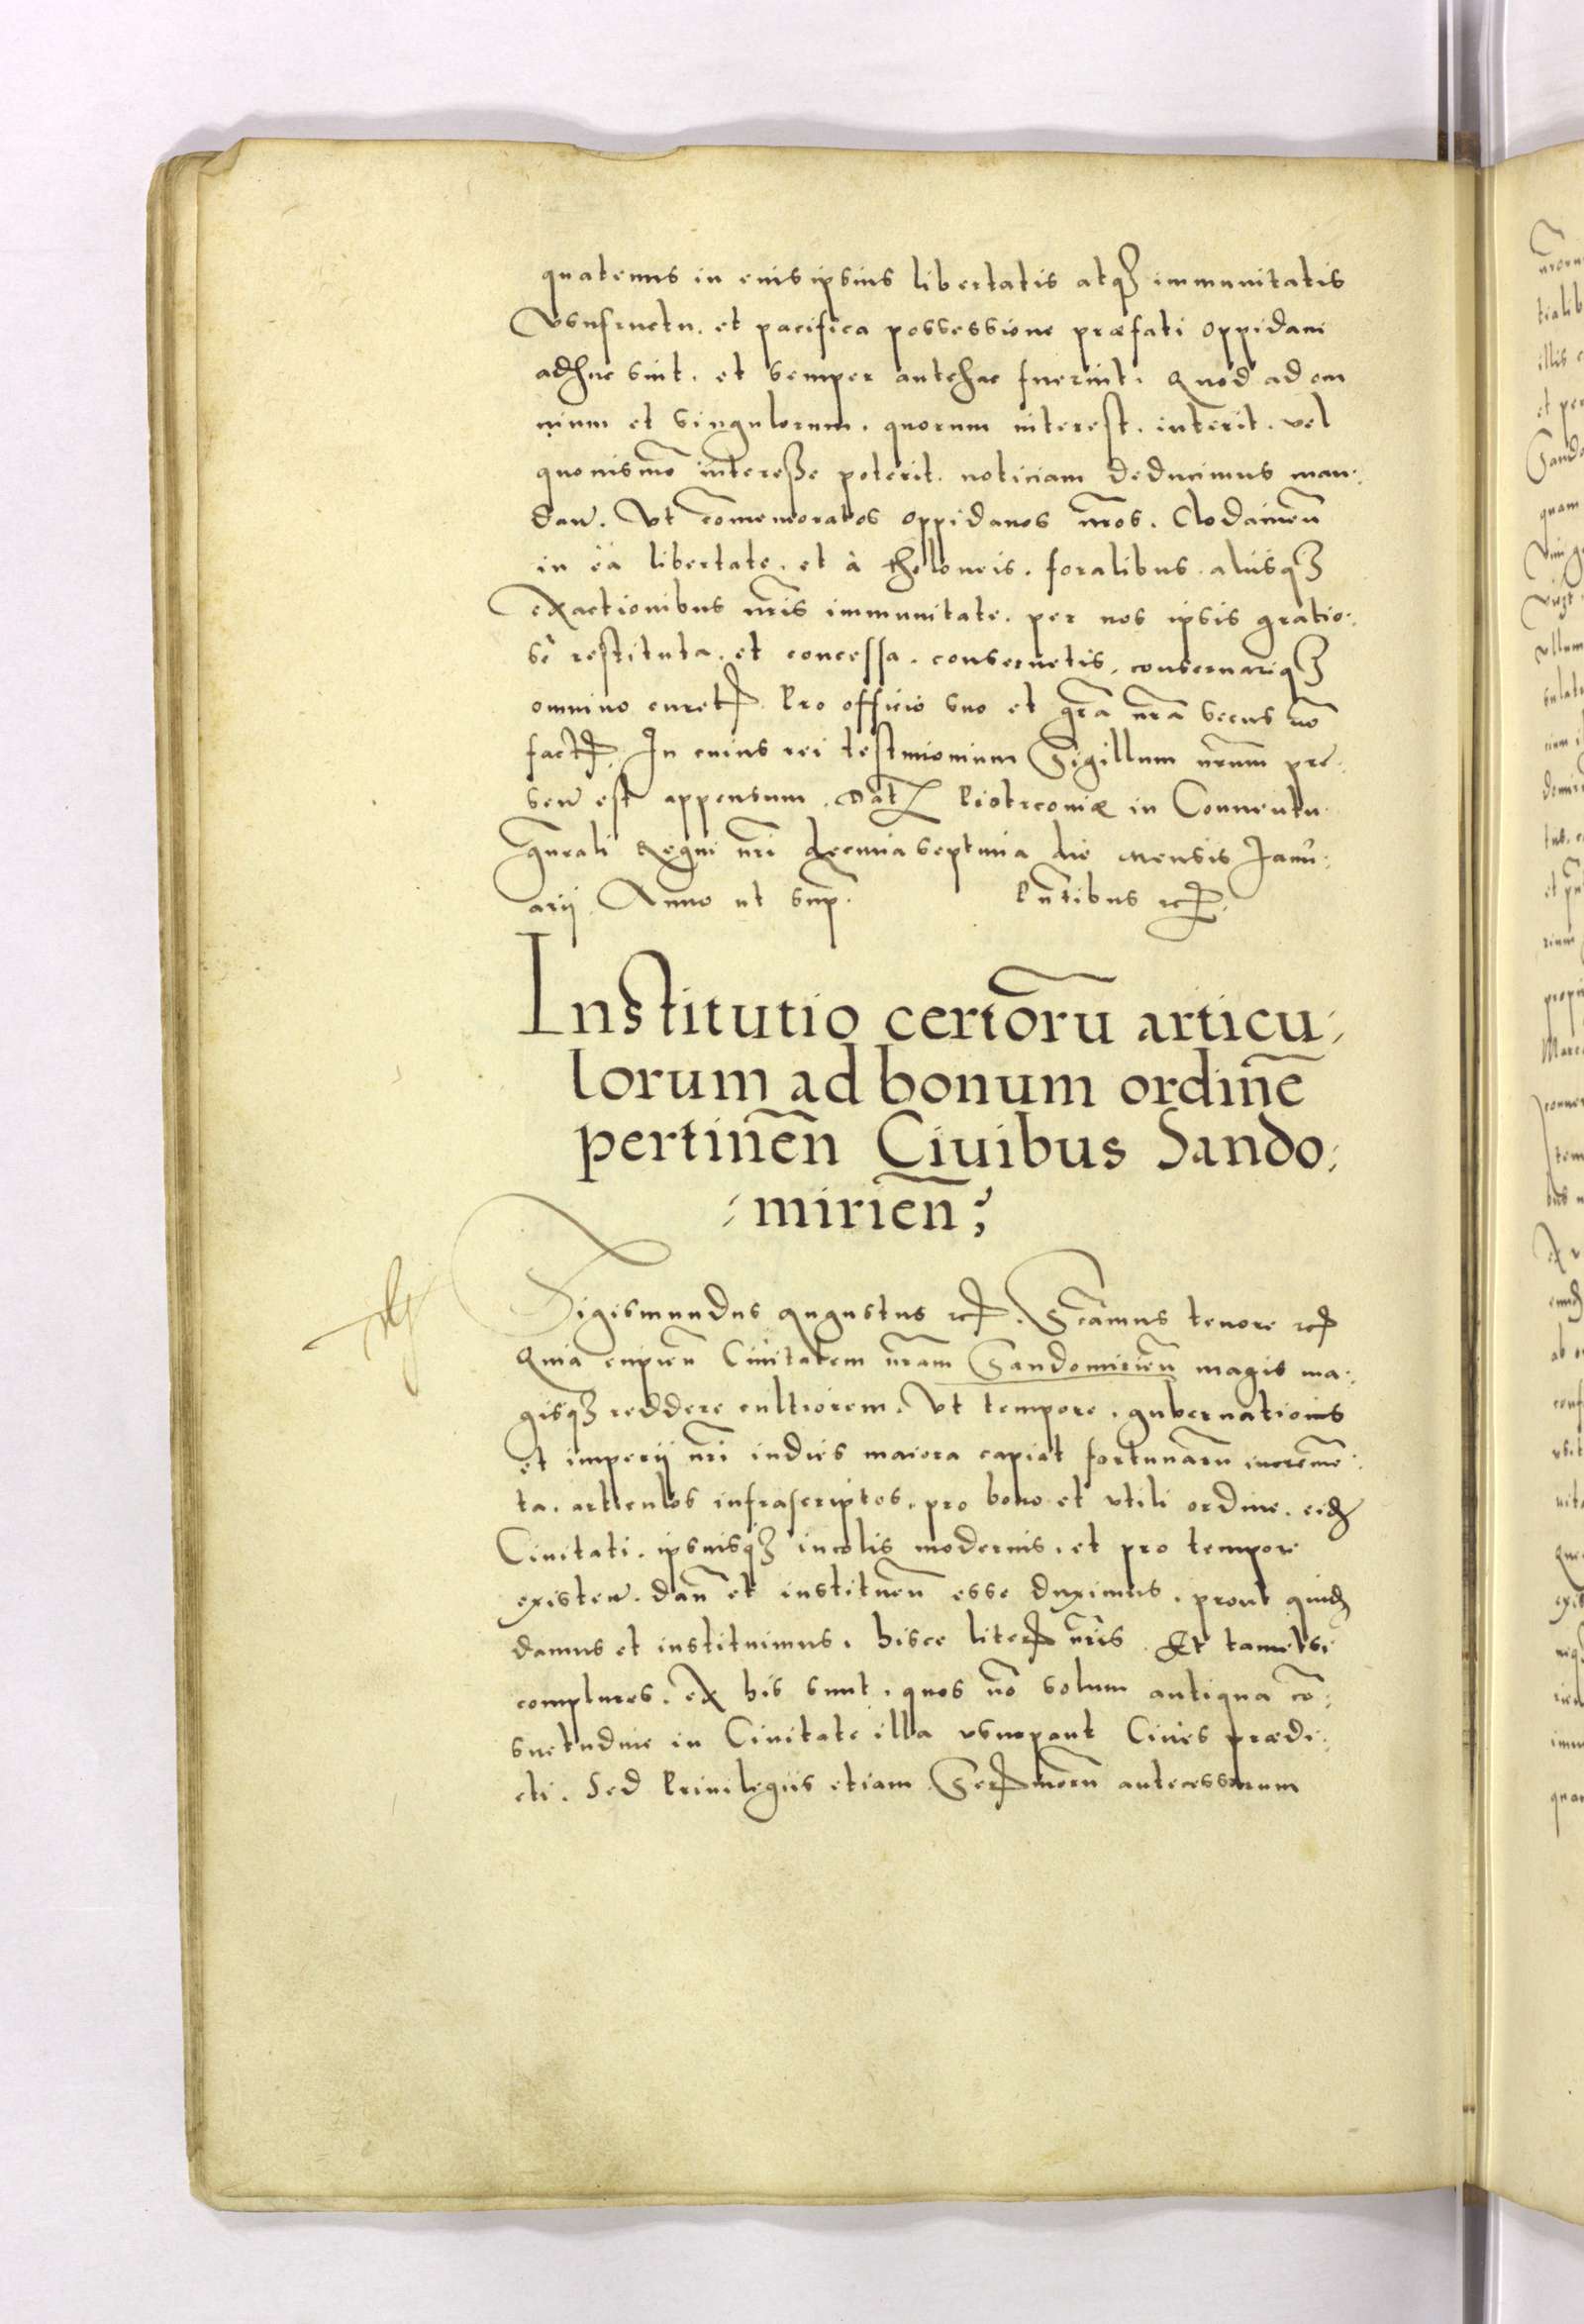 quatenus in eius ipsius libertatis atq; immunitatis
Vsufructu. et pacifica possessione præfati oppidani
adhuc sint. et semper antehac fuerint. Quod ad om
nium et singulorum. quorum interest. intererit. vel
quouismō interesse poterit. noticiam deducimus man:
dan̄. Vt cōmemoratos oppidanos nr̄os. Clodauien̄
in eà libertate. et à theloneis. foralibus. aliisq;
exactionibus nr̄is immunitate. per nos ipsis gratio:
sè restituta. et concessa. conseruetis. conseruariq;
omnino curet. Pro officio suo et gr̄a nr̄a secus nō
fact. In cuius rei testimonium Sigillum nr̄um pre:
sen̄ est appensum. Dat Piotrcouiæ in Conuentu
gn̄rali Regni nr̄i decima septima die mensis Janu:
arij. Anno ut sup. Pn̄tibus rc.
Institutio certorū articu:
lorum ad bonum ordinē
pertinēn Ciuibus Sando:
:miriēn;
Sigismundus Augustus rc. Scāmus tenore rc
Quia cupien̄ Ciuitatem nr̄am Sandomirien̄ magis ma:
gisq; reddere cultiorem. Vt tempore. gubernationis
et imperij nr̄i indies maiora capiat fortunarū incremē:
ta. articulos infrascriptos. pro bono et vtili ordine. eid
Ciuitati. ipsiusq; incolis modernis. et pro tempore
existen̄. dan̄ et instituen̄ esse duximus. prout quid
damus et instituimus. hisce liter nr̄is. Et tametsi
complures. ex his sunt. quos nō solum antiqua cō:
suetudine in Ciuitate illa vsurpant Ciues prædi:
cti. Sed Priuilegiis etiam Ser̄morū antecessorum